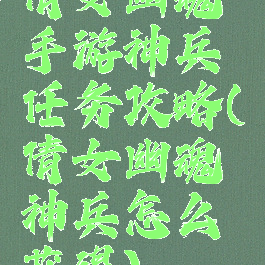 倩女幽魂
手游神兵
任务攻略(
倩女幽魂
神兵怎么